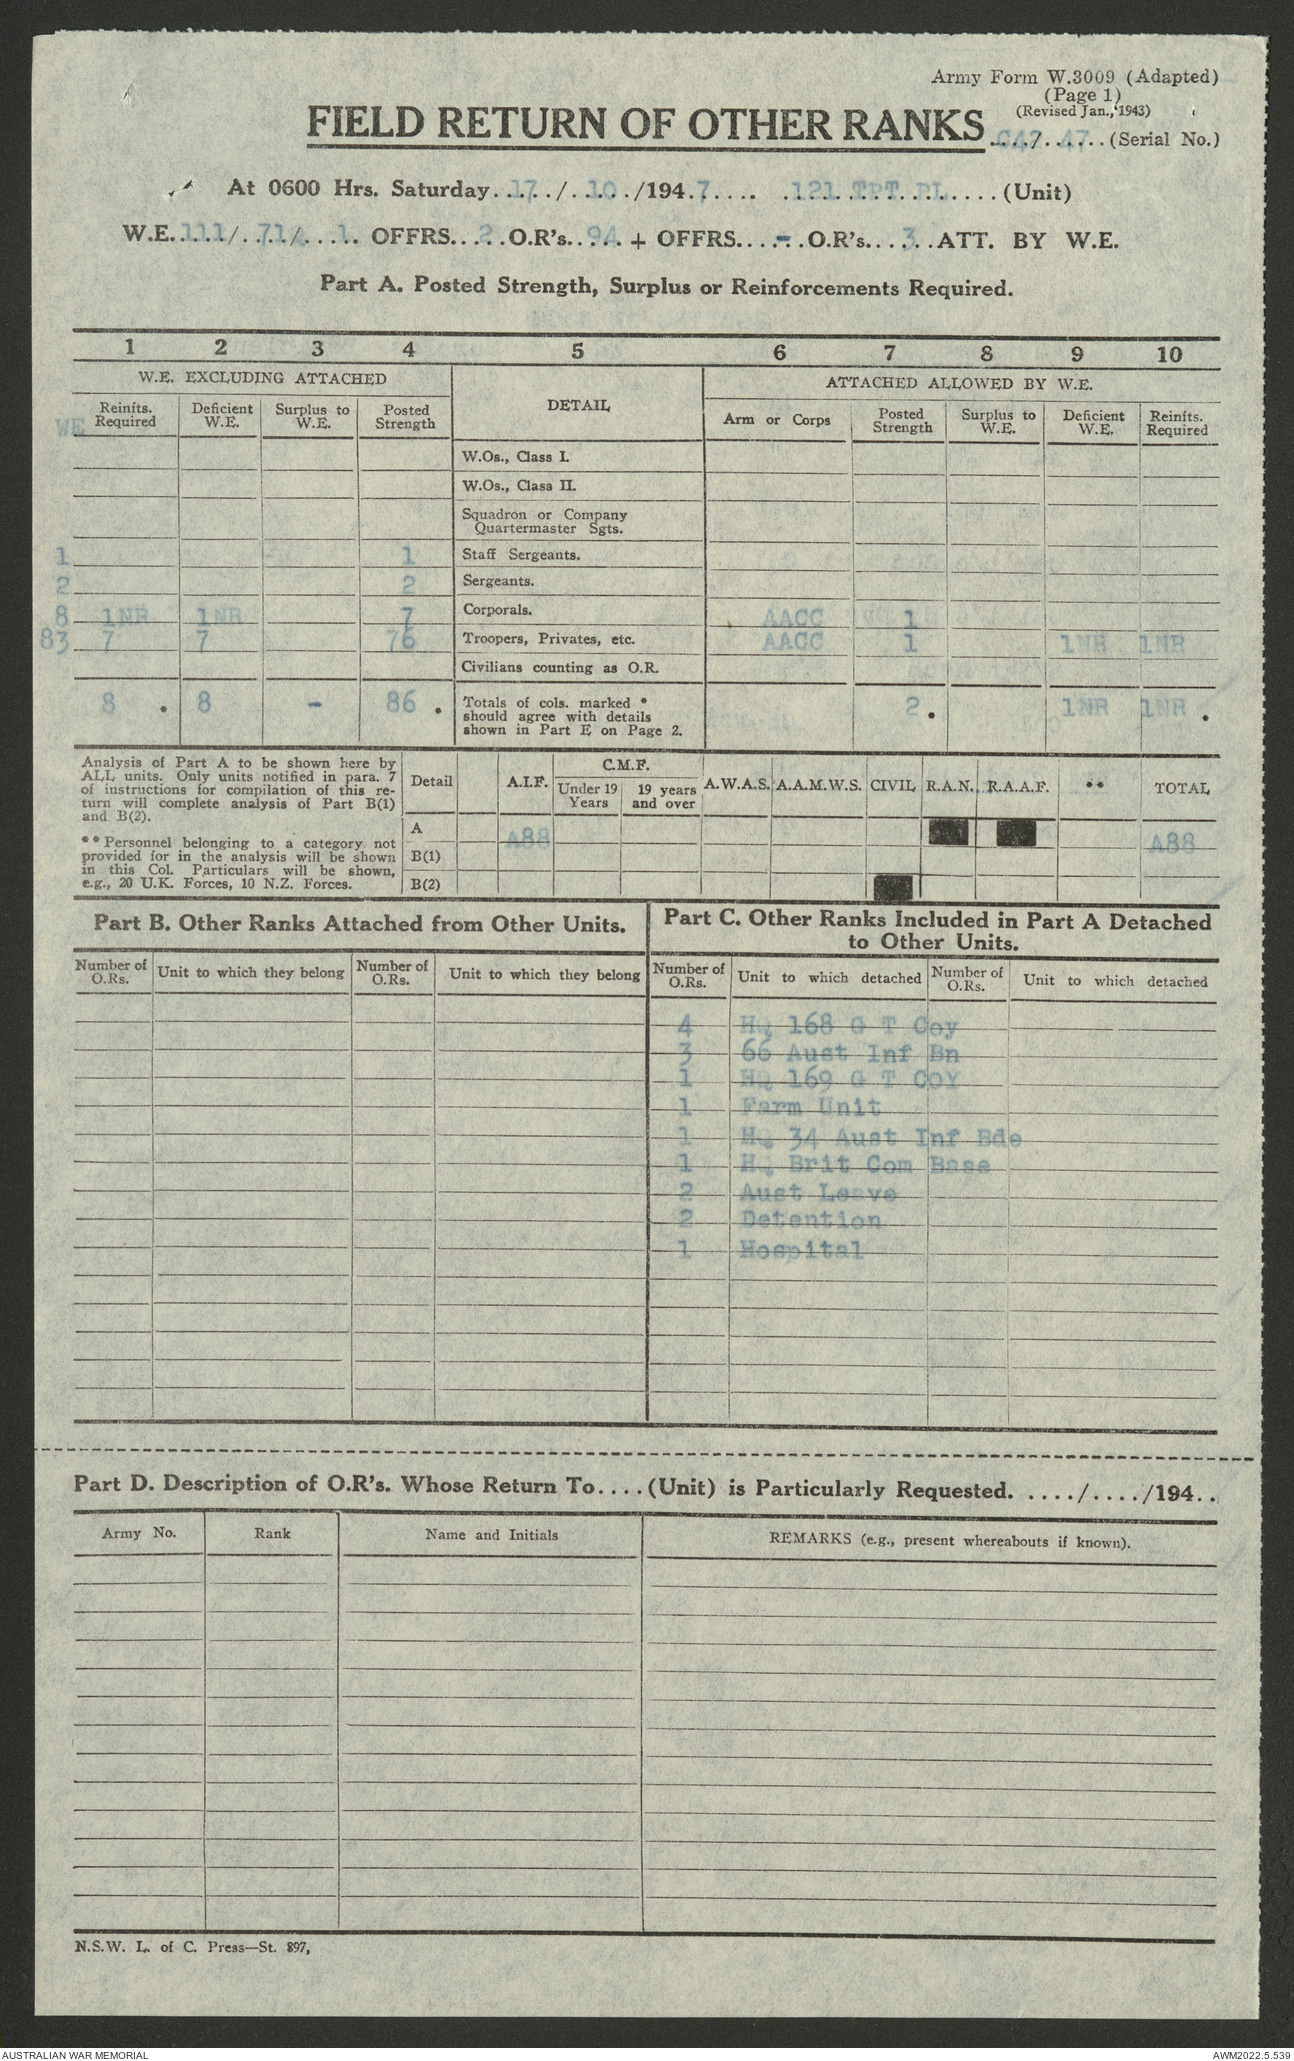 Army Form W.3009 (Adapted)
(Page 1)
(Revised Jan., 1943)
FIELD RETURN OF OTHER RANKS ..../...... (Serial No.)
At 0600 Hrs. Saturday 17/10/1947 121 TPT PL (Unit)
W.E. 111/71/1 OFFRS. 2 O.R's. 94 + OFFRS. - O.R's. 3 ATT. BY W.E.
Part A. Posted Strength, Surplus or Reinforcements Required.
1 2 3 4 5 6 7 8 9 10
W.E. EXCLUDING ATTACHED DETAIL ATTACHED ALLOWED BY W.E.
WE Reinfts. Required Deficient W.E. Surplus to W.E. Posted Strength Arm or Corps Posted Strength Surplus to W.E. Deficient W.E. Reinfts. Required
W.Os., Class I.
W.Os., Class II.
Squadron or Company
Quartermaster Sgts.
1 1 Staff Sergeants.
2 2 Sergeants.
8 1NR 1NR 7 Corporals. AACC 1
83 7 7 76 Troopers, Privates, etc. AACC 1 1NR 1NR
Civilians counting as O.R.
8 * 8 - 86 * Totals of cols. marked * 2 * 1NR 1NR *
should agree with details
shown in Part E on Page 2.
Analysis of Part A to be shown here by
ALL units. Only units notified in para. 7
of instructions for compilation of this re-
turn will complete analysis of Part B(1)
and B(2).
**Personnel belonging to a category not
provided for in the analysis will be shown
in this Col. Particulars will be shown,
e.g., 20 U.K. Forces, 10 N.Z. Forces.
Detail A.I.F. C.M.F. A.W.A.S. A.A.M.W.S. CIVIL R.A.N. R.A.A.F. ** TOTAL
Under 19 Years 19 years and over
A A88 A88
B(1)
B(2)
Part B. Other Ranks Attached from Other Units.
Number of O.Rs. Unit to which they belong Number of O.Rs. Unit to which they belong
Part C. Other Ranks Included in Part A Detached
to Other Units.
Number of O.Rs. Unit to which detached Number of O.Rs. Unit to which detached
4 HQ 168 G T Coy
3 66 Aust Inf Bn
1 HQ 169 G T COY
1 Farm Unit
1 HQ 34 Aust Inf Bde
1 HQ Brit Com Base
2 Aust Leave
2 Detention
1 Hospital
Part D. Description of O.R's. Whose Return To.... (Unit) is Particularly Requested. ..../..../194..
Army No. Rank Name and Initials REMARKS (e.g., present whereabouts if known).
N.S.W. L. of C. Press—St. 897,
AUSTRALIAN WAR MEMORIAL AWM2022.5.539